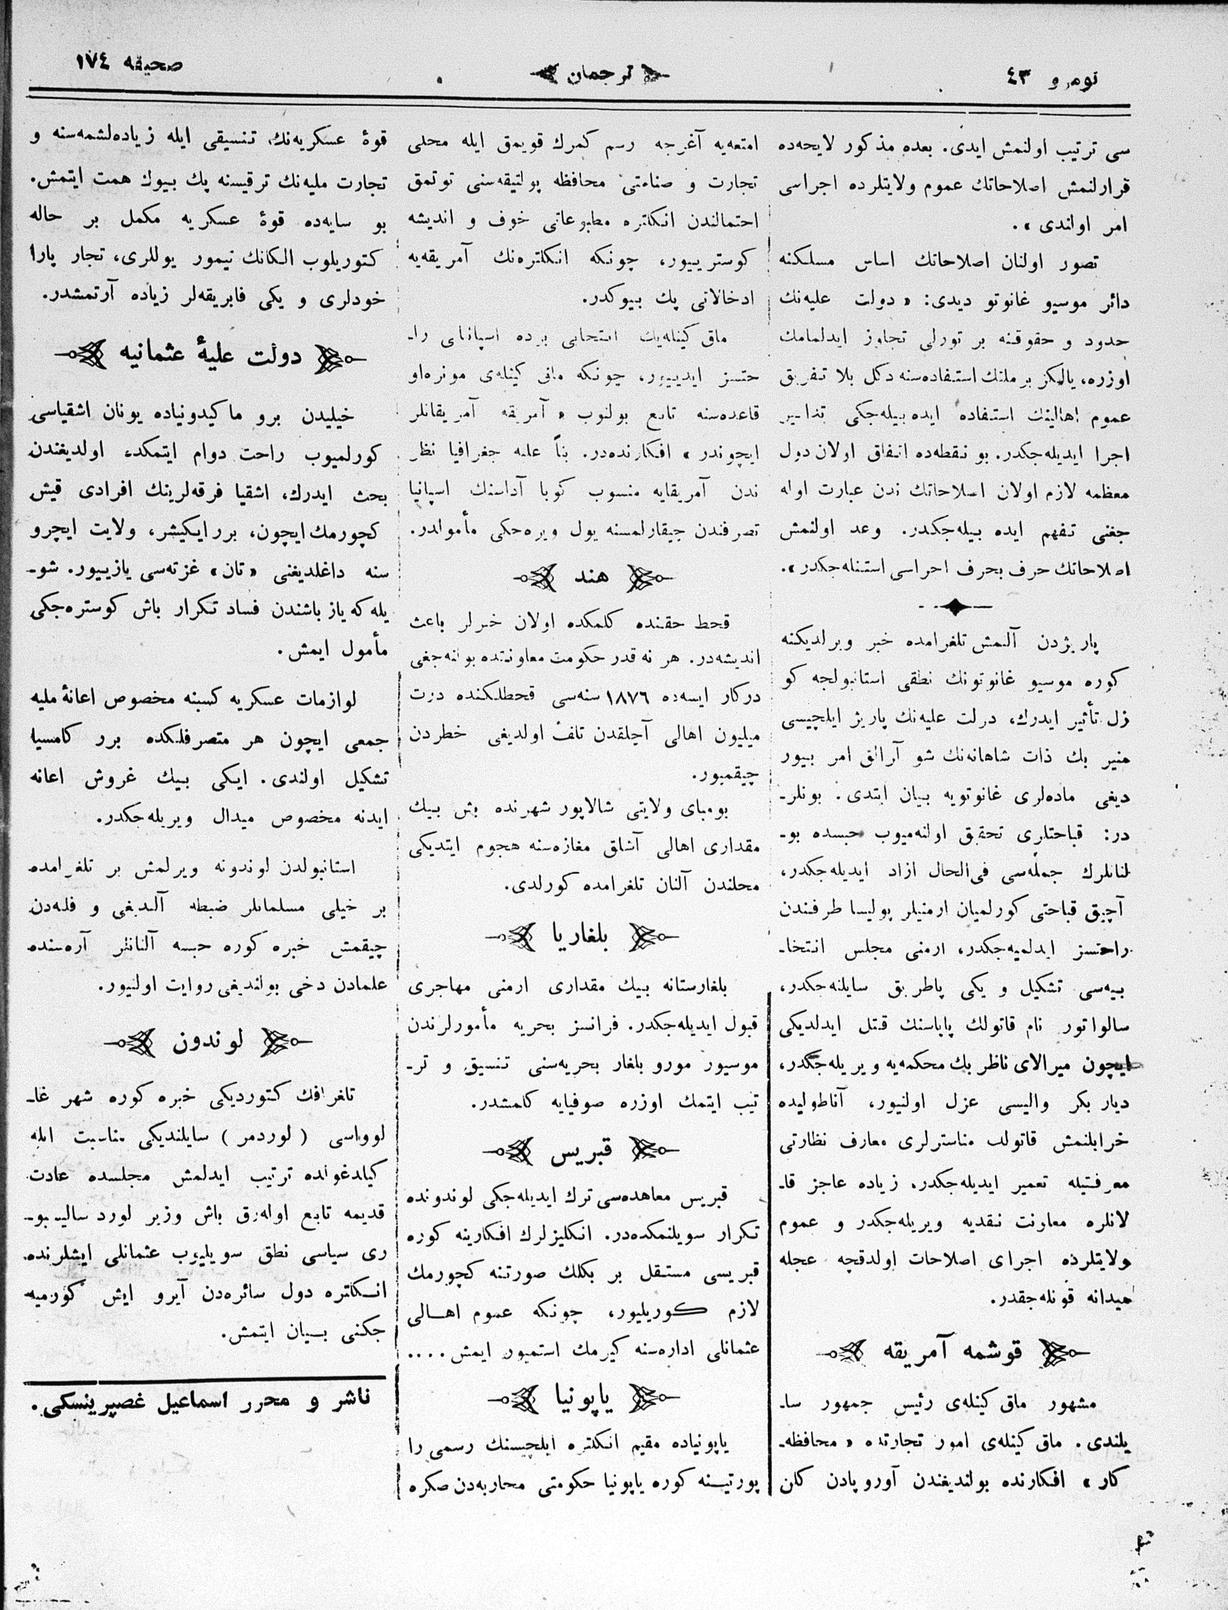 نومرو ٤٣
ترجمان
صحيفه ١٧٤
سی ترتيب اولنمش ايدی. بعده مذكور لايحه‌ده
قرارلنمش اصلاحاتك عموم ولايتلرده اجراسی
امر اولندی ».
تصور اولنان اصلاحاتك اساس مسلكنه
دائر موسيو غانوتو ديدی: « دولت عليه‌نك
حدود و حقوقنه بر تورلی تجاوز ايدلمامك
اوزره، يالكز بر ملتك استفاده‌سنه دكل بلا تفريق
عموم اهالينك استفاده ايده بيله‌جكی تدابير
اجرا ايديله‌جكدر. بو نقطه‌ده اتفاق اولان دول
معظمه لازم اولان اصلاحاتك ندن عبارت اوله
جغنی تفهم ايده بيله‌جكدر. وعد اولنمش
اصلاحاتك حرف بحرف اجراسی استنله‌جكدر ».
پاريژدن آلنمش تلغرامده خبر ويرلديكنه
كوره موسيو غانوتونك نطقی استانبولجه كو
زل تأثير ايدرك، دولت عليه‌نك پاريژ ايلچيسی
منير بك ذات شاهانه‌نك شو آرالق امر بيور
ديغی ماده‌لری غانوتويه بيان ايتدی. بونلر-
در: قباحتلری تحقق اولنه‌ميوب حبسده بو-
لنانلرك جمله‌سی فی‌الحال ازاد ايديله‌جكدر،
آچيق قباحتی كورلميان ارمنيلر پوليسا طرفندن
راحتسز ايدلميه‌جكدر، ارمنی مجلس انتخا-
بيه‌سی تشكيل و يكی پاطريق سايلنه‌جكدر،
سالواتور نام قاتولك پاپاسنك قتل ايدلديكی
ايچون ميرالای ناظر بك محكمه‌يه ويريله‌جكدر،
ديار بكر واليسی عزل اولنيور، آناطوليده
خرابلنمش قاتولك مناسترلری معارف نظارتی
معرفتيله تعمير ايديله‌جكدر. زياده عاجز قا-
لانلره معاونت نقديه ويريله‌جكدر و عموم
ولايتلرده اجرای اصلاحات اولدقچه عجله
ميدانه قونله‌جقدر.
قوشمه آمريقه
مشهور ماق كينله‌ی رئيس جمهور سا-
يلندی. ماق كينله‌ی امور تجارتده « محافظه-
كار » افكارنده بولنديغندن آوروپادن كلن
امتعه‌يه آغرجه رسم كمرك قويمق ايله محلی
تجارت و صناعتی محافظه پولتيقه‌سنی توتمق
احتمالندن انكلتره مطبوعاتی خوف و انديشه
كوستريور، چونكه انكلتره‌نك آمريقه‌يه
ادخالاتی پك بيوكدر.
ماق كينله‌ينك انتخابی برده اسپانيای را-
حتسز ايدييور، چونكه ماق كينله‌ی مونره‌او
قاعده‌سنه تابع بولنوب « آمريقه آمريقانلر
ايچوندر » افكارنده‌در. بناً عليه جغرافيا نظر
ندن آمريقايه منسوب كوبا آداسنك اسپانيا
تصرفندن چيقارلمسنه يول ويره‌جكی مأمولدر.
هند
قحط حقنده كلمكده اولان خبرلر باعث
انديشه‌در. هر نه قدر حكومت معاونتده بولنه‌جغی
دركار ايسه‌ده ١٨٧٦ سنه‌سی قحطلكنده درت
ميليون اهالی آچلقدن تلف اولديغی خطردن
چيقميور.
بومبای ولايتی شالاپور شهرنده بش بيك
مقداری اهالی آشلق مغازه‌سنه هجوم ايتديكی
محلندن آلنان تلغرامده كورلدی.
بلغاريا
بلغارستانه بيك مقداری ارمنی مهاجری
قبول ايديله‌جكدر. فرانسز بحريه مأمورلرندن
موسيور مورو بلغار بحريه‌سنی تنسيق و تر-
تيب ايتمك اوزره صوفيايه كلمشدر.
قبريس
قبريس معاهده‌سی ترك ايديله‌جكی لوندونده
تكرار سويلنمكده‌در. انكليزلرك افكارينه كوره
قبريسی مستقل بر بكلك صورتنه كچورمك
لازم كوريليور، چونكه عموم اهالی
عثمانلی اداره‌سنه كيرمك استميور ايمش....
ياپونيا
ياپونياده مقيم انكلتره ايلچيسنك رسمی را
پورتينه كوره ياپونيا حكومتی محاربه‌دن صكره
قوۀ عسكريه‌نك تنسيقی ايله زياده‌لشمه‌سنه و
تجارت مليه‌نك ترقيسنه پك بيوك همت ايتمش.
بو سايه‌ده قوۀ عسكريه مكمل بر حاله
كتوريلوب الكانك تيمور يوللری، تجار پارا
خودلری و يكی فابريقه‌لر زياده آرتمشدر.
دولت عليۀ عثمانيه
خيليدن برو ماكيدونياده يونان اشقياسی
كورلميوب راحت دوام ايتمكده اولديغندن
بحث ايدرك، اشقيا فرقه‌لرينك افرادی قيش
كچورمك ايچون، برر ايكيشر، ولايت ايچرو
سنه داغلديغنی « تان » غزته‌سی يازييور. شو-
يله كه ياز باشندن فساد تكرار باش كوستره‌جكی
مأمول ايمش.
لوازمات عسكريه كسبنه مخصوص اعانۀ مليه
جمعی ايچون هر متصرفلكده برر كامسيا
تشكيل اولندی. ايكی بيك غروش اعانه
ايدنه مخصوص ميدال ويريله‌جكدر.
استانبولدن لوندونه ويرلمش بر تلغرامده
بر خيلی مسلمانلر ضبطه آلنديغی و قلعه‌دن
چيقمش خبره كوره حبسه آلنانلر آره‌سنده
علمادن دخی بولنديغی روايت اولنيور.
لوندون
تلغرافك كتورديكی خبره كوره شهر غا-
لوواسی ( لوردمر ) سايلنديكی مناسبت ايله
كيلدغولده ترتيب ايدلمش مجلسده عادت
قديمه تابع اوله‌رق باش وزير لورد ساليسبو-
ری سياسی نطق سويليوب عثمانلی ايشلرنده
انكلتره دول سائره‌دن آيرو ايش كورميه-
جكنی بيان ايتمش.
ناشر و محرر اسماعيل غصپرينسكی.